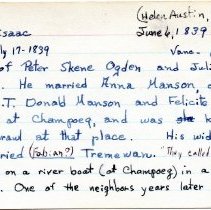 (Helen Austin,
Isaac June 6, 1839
ly 17-1839 Vanc
of Peter Skene Ogden and Juli
. He married Anna Manson,
.T. Donald Manson and Felicite
at Champoeg, and was k
rawd at that place. His wid
rried (Fabian?) Tremewan. "They called
on a river boat (at Champoeg) in a
. One of the neighbors years later